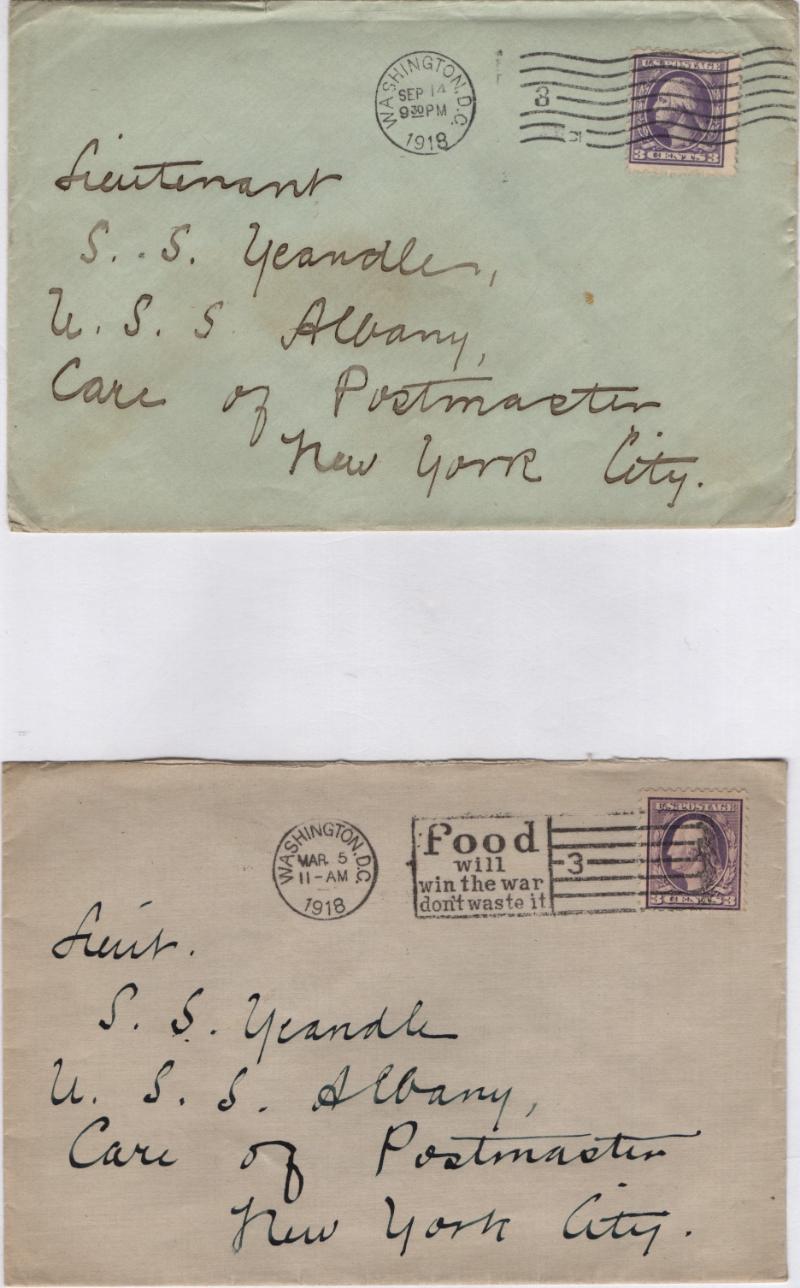 WASHINGTON, D.C.
SEP 14
9 30 PM
1918
3
U.S. POSTAGE
3 CENTS 3
Lieutenant
S. S. Yeandle,
U. S. S. Albany,
Care of Postmaster
New York City.
WASHINGTON, D.C.
MAR. 5
11-AM
1918
Food
will
win the war
don't waste it.
3
U.S. POSTAGE
3 CENTS 3
Lieut.
S. S. Yeandle
U. S. S. Albany,
Care of Postmaster
New York City.